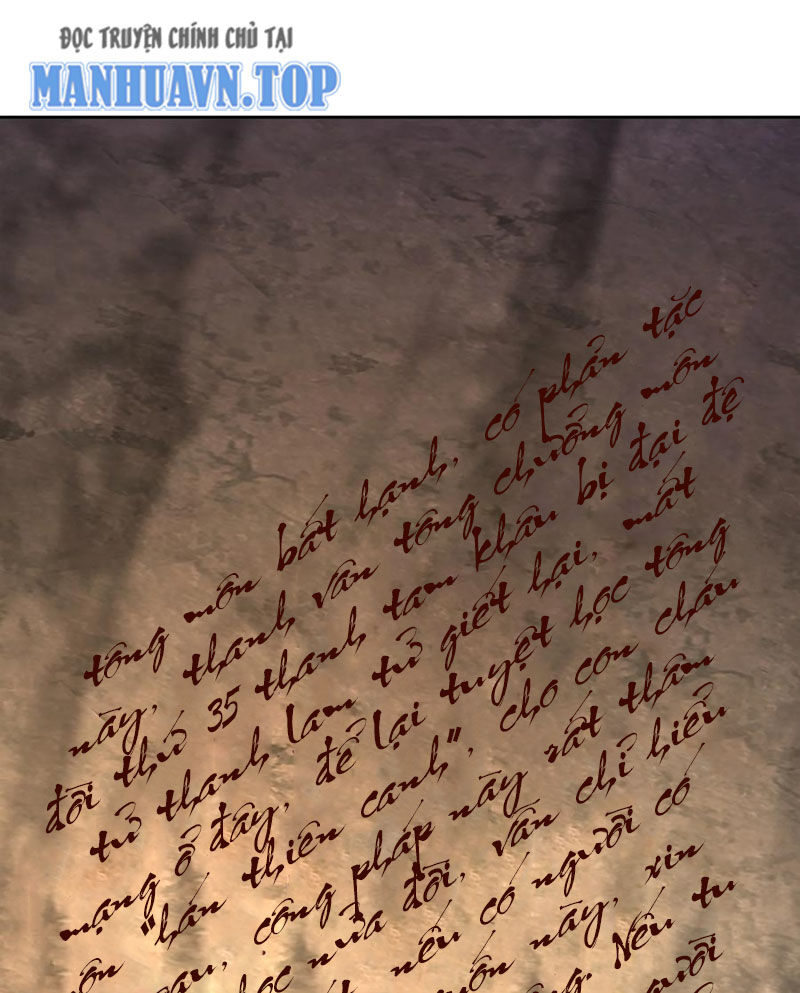 ĐỌC TRUYỆN CHÍNH CHỦ TẠI
MANHUAVN.TOP
tông môn bất hạnh, có phản tặc
này, thanh vân tông chưởng môn
đời thứ 35 thanh tam khâu bị đại đệ
tử thanh lam tử giết hại, mất
mạng ở đây, để lại tuyệt học tông
môn "hán thiên canh", cho con cháu
sau, công pháp này rất thâm
học nửa đời, vẫn chỉ hiểu
nếu có người có
môn này, xin
Nếu tu
người